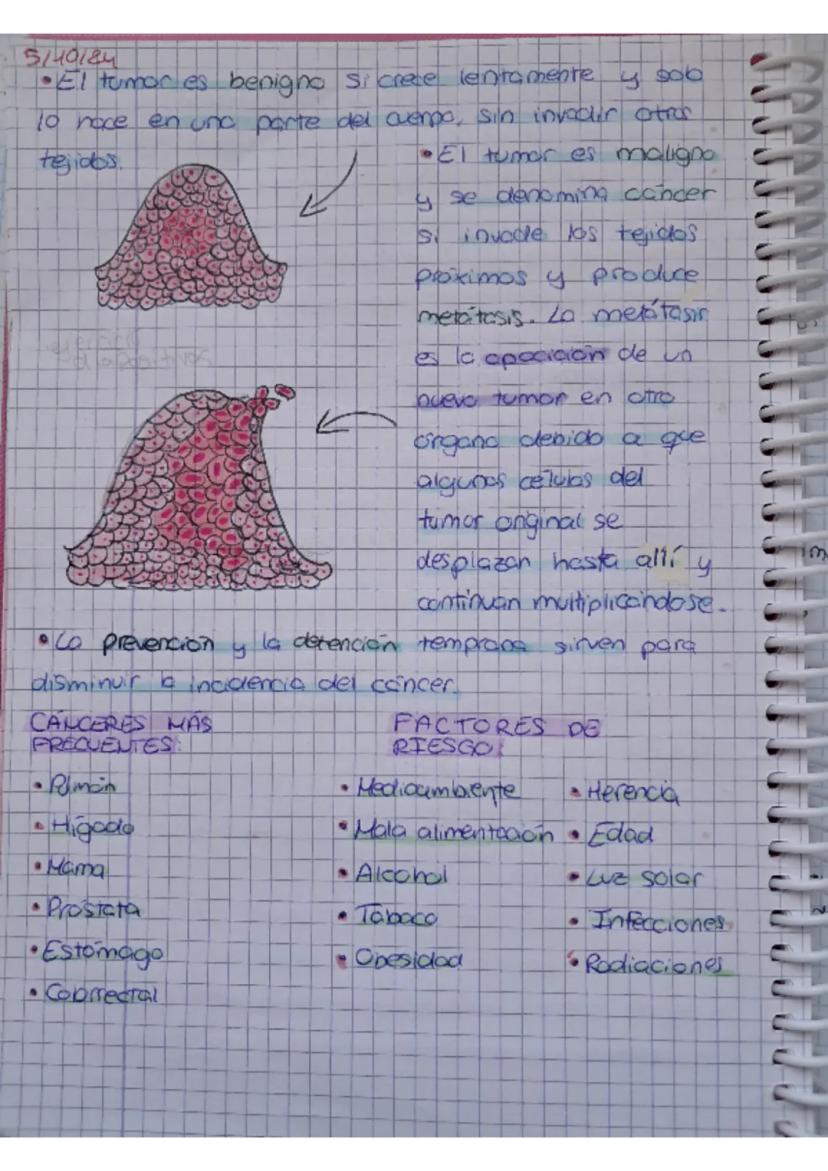 5/10/24
• El tumor es benigno si crece lentamente y solo
lo hace en una parte del cuerpo, sin invadir otros
tejidos.
• El tumor es maligno
y se denomina cáncer
si invade los tejidos
próximos y produce
metátasis. La metátasis
es la aparición de un
nuevo tumor en otro
órgano debido a que
algunas células del
tumor original se
desplazan hasta allí y
continúan multiplicándose.
• La prevención y la detención temprana sirven para
disminuir la incidencia del cáncer.
CÁNCERES MÁS
FRECUENTES:
• Pulmón
• Hígado
• Mama
• Próstata
• Estómago
• Colorrectal
FACTORES DE
RIESGO:
• Medioambiente
• Mala alimentación
• Alcohol
• Tabaco
• Obesidad
• Herencia
• Edad
• Luz solar
• Infecciones
• Radiaciones